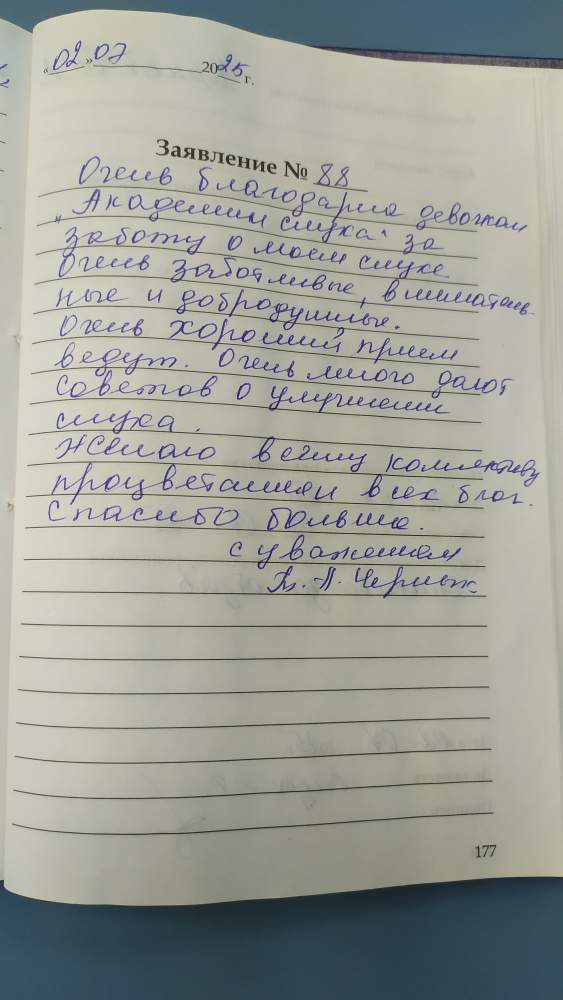 «02»07 2025 г.
Заявление № 88
Очень благодарна девочкам
„Академии слуха" за
заботу о моем слухе
Очень заботливые, вниматель-
ные и добродушные.
Очень хороший прием
ведут. Очень много дают
советов о улучшении
слуха.
Желаю всему коллективу
процветания и всех благ.
Спасибо большое.
с уважением
177